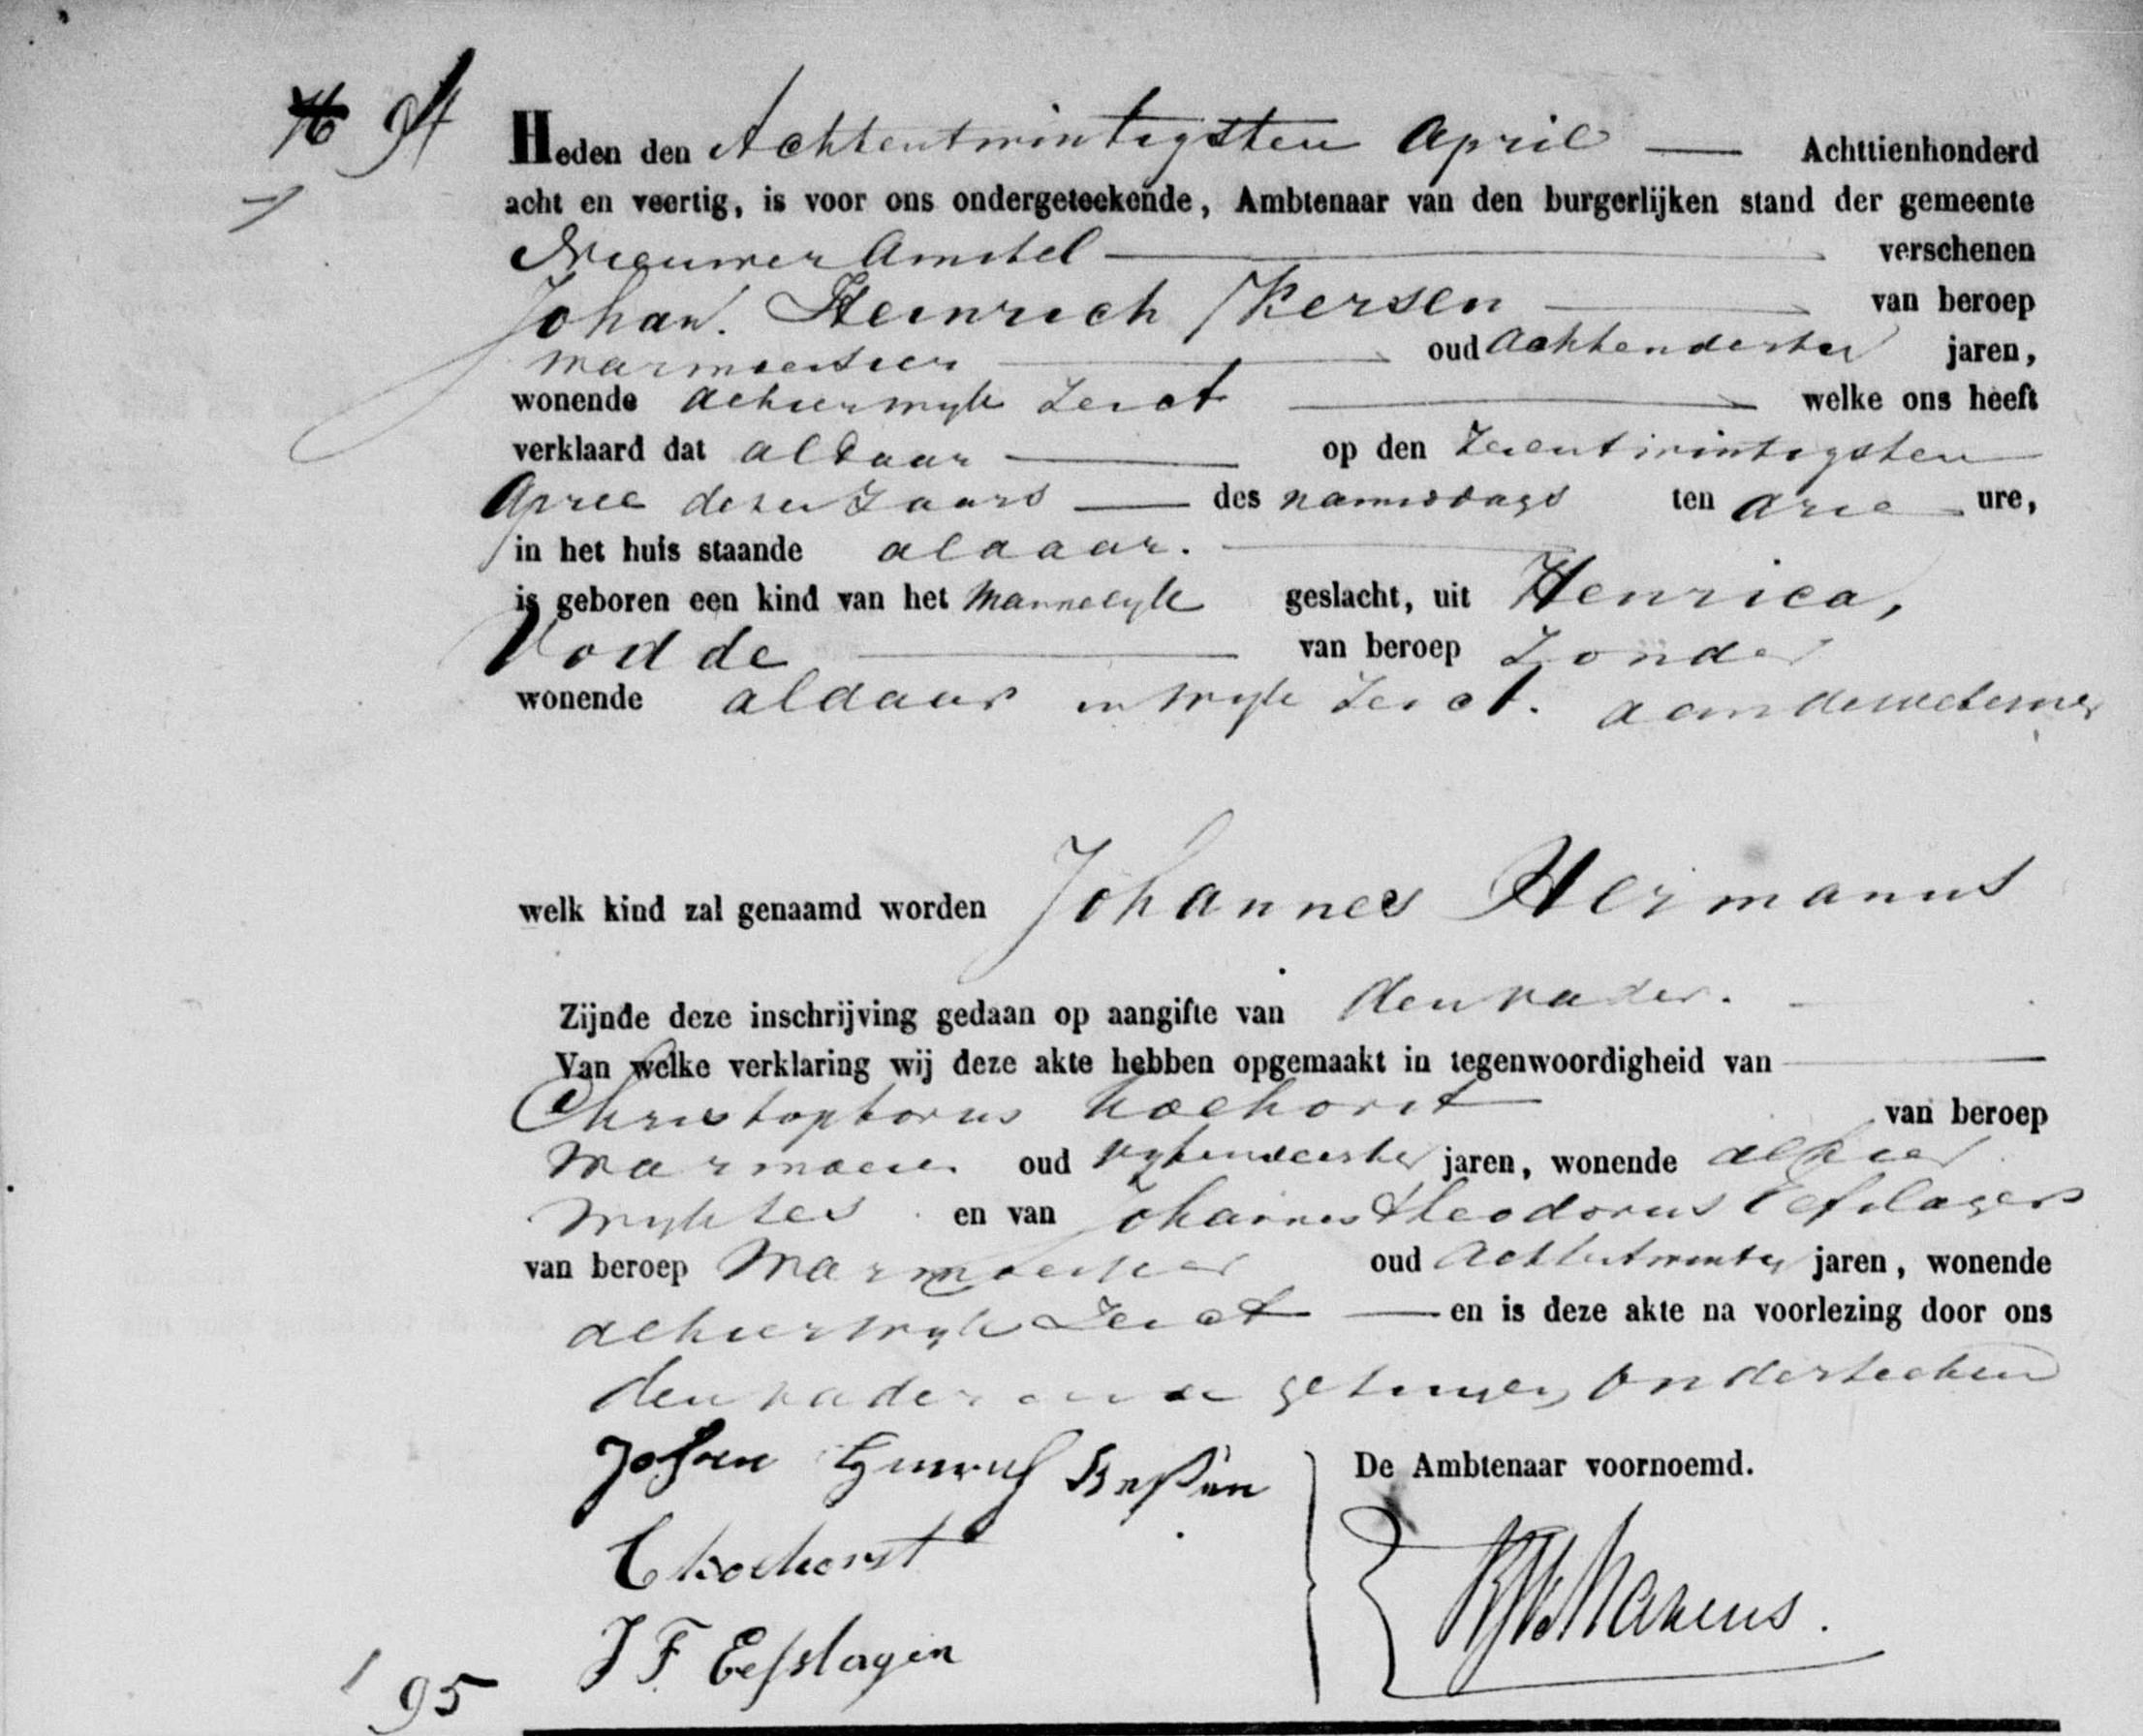 Heden den Achtentwintigsten April — Achttienhonderd
acht en veertig, is voor ons ondergeteekende, Ambtenaar van den burgerlijken stand der gemeente
Nieuwer Amstel — verschenen
Johan Heinrich Kersen — van beroep
warmoesier — oud Achtendertig jaren,
wonende alhier wyk Zes — welke ons heeft
verklaard dat aldaar — op den Zeventwintigsten
April dezes Jaars — des namiddags ten drie ure,
in het huis staande aldaar. —
is geboren een kind van het Mannelyk geslacht, uit Henrica,
Vodde — van beroep Zonder
wonende aldaar in wyk Zes
welk kind zal genaamd worden Johannes Hermanus
Zijnde deze inschrijving gedaan op aangifte van den vader.
Van welke verklaring wij deze akte hebben opgemaakt in tegenwoordigheid van —
Christophorus Koehorst van beroep
Warmoesier oud vyfendertig jaren, wonende alhier
wyk en van Johannes Theodorus Eefslagen
van beroep Warmoesier oud Achtentwintig jaren, wonende
alhier wyk Zes — en is deze akte na voorlezing door ons
den vader en de getuigen onderteekend
Johan Heinrich
C Koehorst
J F Eefslagen
De Ambtenaar voornoemd.
95